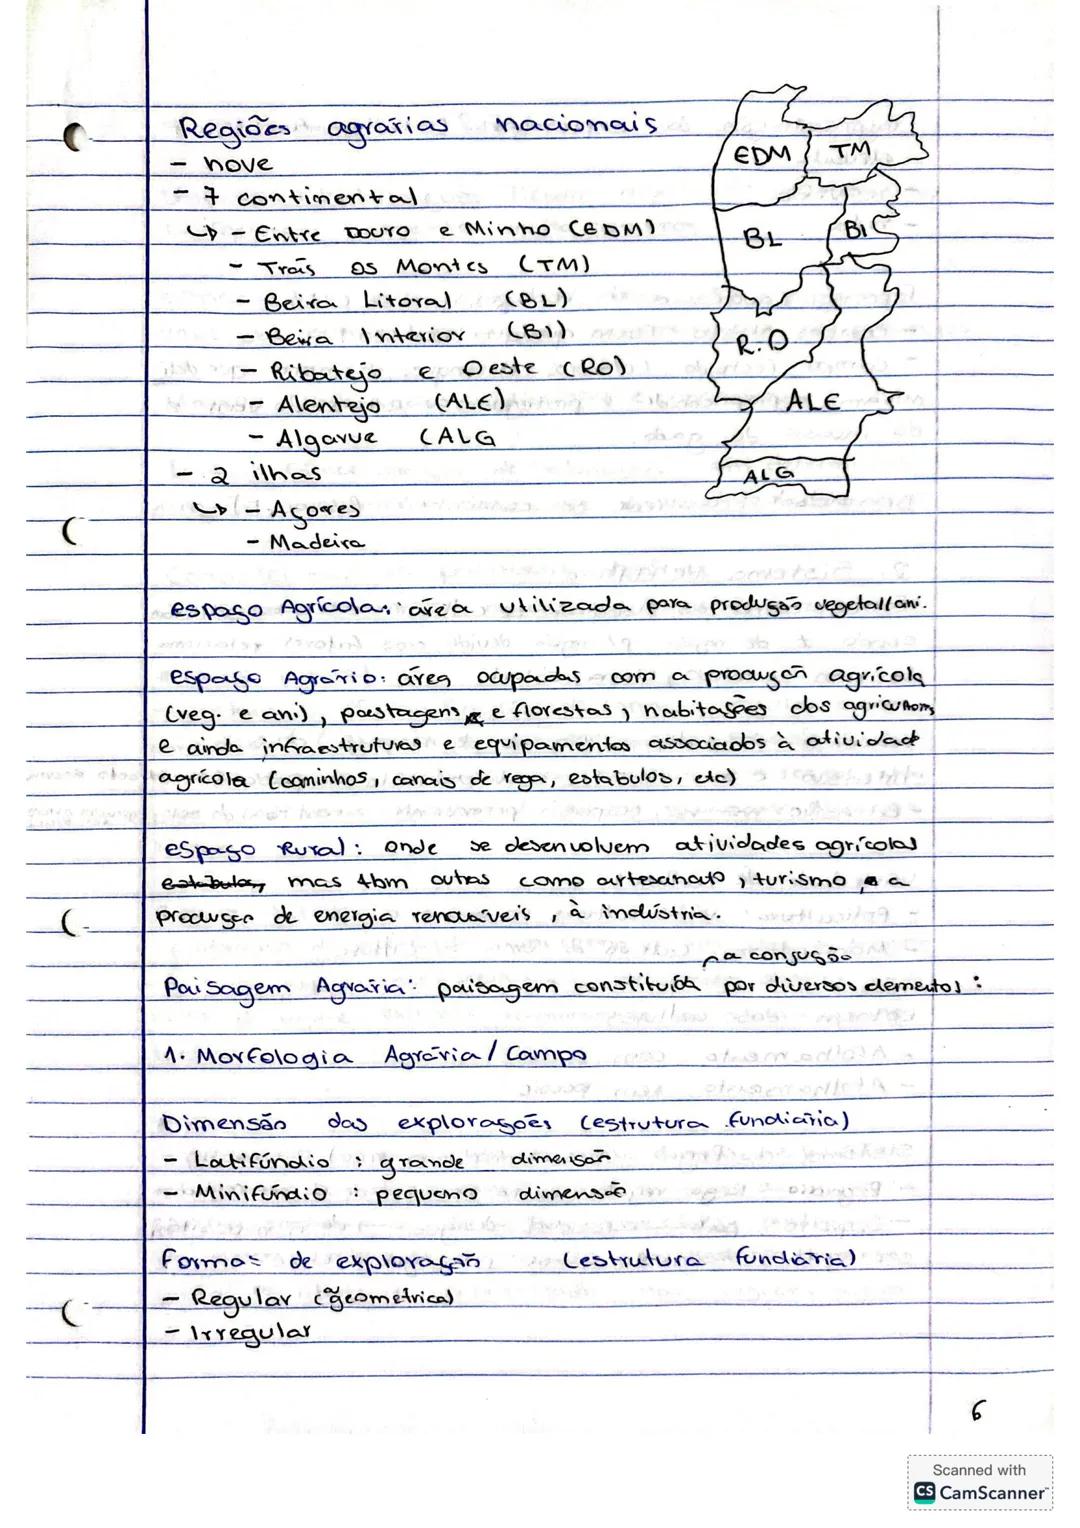 Regiões agrárias nacionais
- nove
- 7 continental
↳ - Entre Douro e Minho (EDM)
- Trás os Montes (TM)
- Beira Litoral (BL)
- Beira Interior (BI)
- Ribatejo e Oeste (RO)
- Alentejo (ALE)
- Algarve (ALG
- 2 ilhas
↳ - Açores
- Madeira
EDM TM
BL BI
R.O
ALE
ALG
espaço Agrícola: área utilizada para produção vegetal/ani.
espaço Agrário: área ocupadas com a produção agrícola
(veg. e ani), pastagens e florestas, habitações dos agricultores
e ainda infraestruturas e equipamentos associados à atividade
agrícola (caminhos, canais de rega, estabulos, etc)
espaço Rural: onde se desenvolvem atividades agrícolas
estabulos, mas tbm outras como artesanato, turismo, a
produção de energia renováveis, à indústria.
na conjução
Paisagem Agrária: paisagem constituída por diversos elementos:
1. Morfologia Agrária / Campo
Dimensão das explorações (estrutura fundiária)
- Latifúndio : grande dimensão
- Minifúndio : pequeno dimensão
Formas de exploração (estrutura fundiária)
- Regular (geometrica)
- Irregular
6
Scanned with
CS CamScanner